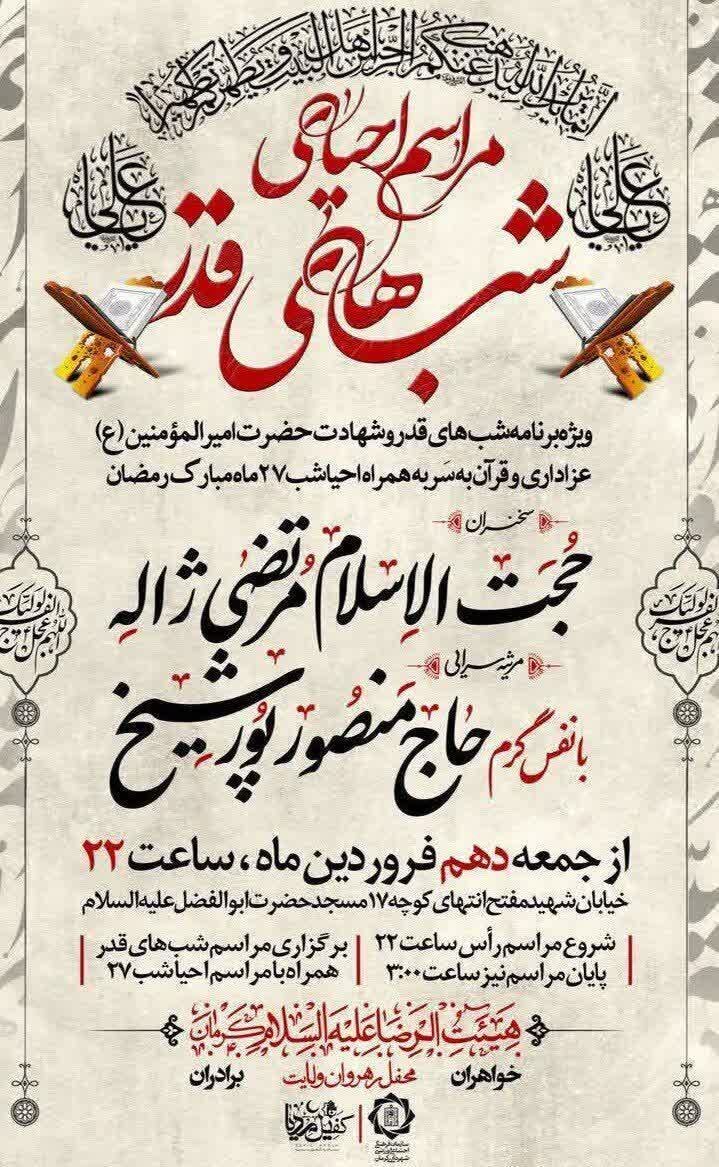 انما یرید الله لیذهب عنکم الرجس اهل البیت و یطهرکم تطهیرا
مراسم احیای
یا علی
یا علی
شب‌های قدر
ویژه برنامه شب‌های قدر و شهادت حضرت امیرالمؤمنین (ع)
عزاداری و قرآن به سَر به همراه احیا شب ۲۷ ماه مبارک رمضان
سخنران
حُجَت الاِسلام مُرتضی ژاله
مرثیه سرایی
با نفس گرم حاج مَنصور پورشیخ
از جمعه دهم فروردین ماه، ساعت ۲۲
خیابان شهید مفتح انتهای کوچه ۱۷ مسجد حضرت ابوالفضل علیه السلام
شروع مراسم رأس ساعت ۲۲
پایان مراسم نیز ساعت ۳:۰۰
برگزاری مراسم شب‌های قدر
همراه با مراسم احیا شب ۲۷
هیئت الرضا علیه السلام کرمان
خواهران
محفل رهروان ولایت
برادران
سازمان فرهنگی
اجتماعی و ورزشی
شهرداری کرمان
اللهم عجل لولیک الفرج
اللهم عجل لولیک الفرج